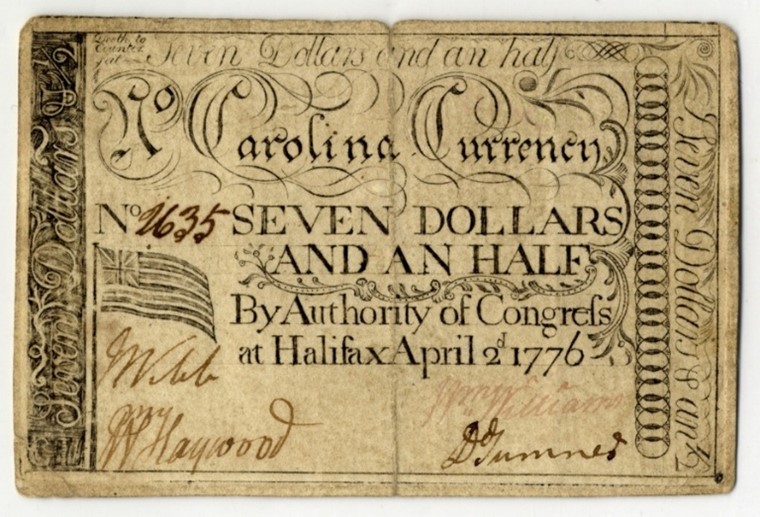 Death to
Counter
feit
Seven Dollars and an half
No Carolina Currency
No 2635 SEVEN DOLLARS
AND AN HALF
By Authority of Congreſs
at Halifax April 2d 1776
J Webb
Wm Williams
Wm Haywood
D Sumner
Seven Dollars & 1/2
Seven Dollars & an 1/2